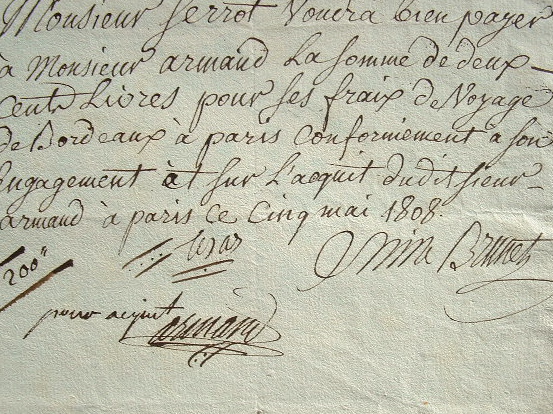 Monsieur Serrot Voudra bien payer
à Monsieur armand La somme de deux
cent Livres pour ses fraix de Voyage
de Bordeaux à paris Conformement a son
Engagement Et sur L'acquit duditsieur
armand à paris Ce Cinq mai 1808.
200"
Brunet
pour acquit
armand